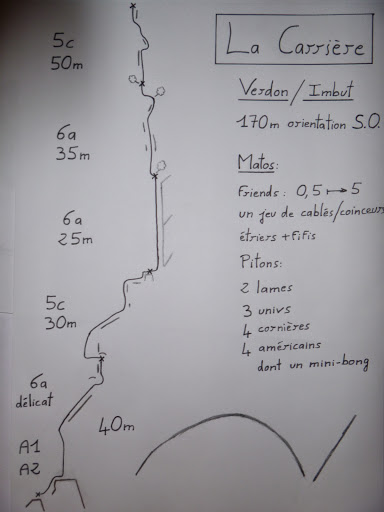 La Carrière
Verdon/Imbut
170m orientation S.O.
Matos:
Friends: 0,5 ↦ 5
un jeu de cablés/coinceurs
étriers + fifis
Pitons:
2 lames
3 univs
4 cornières
4 américains
dont un mini-bong
5c
50m
6a
35m
6a
25m
5c
30m
6a
délicat
40m
A1
A2